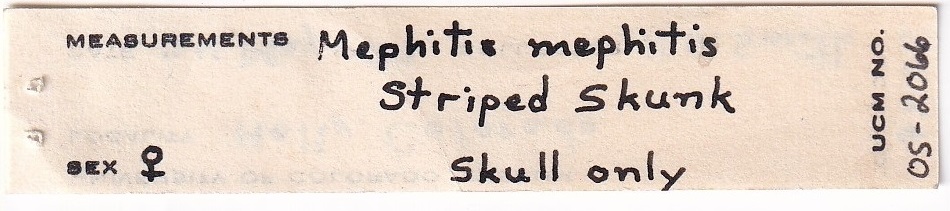 MEASUREMENTS Mephitis mephitis
Striped Skunk
SEX ♀ Skull only
UCM NO.
OS-2066